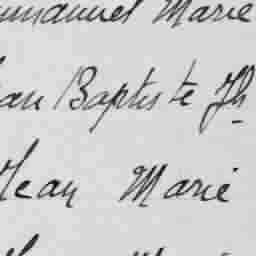 mmanuel Marie
an Baptiste Jh
Jean Marie